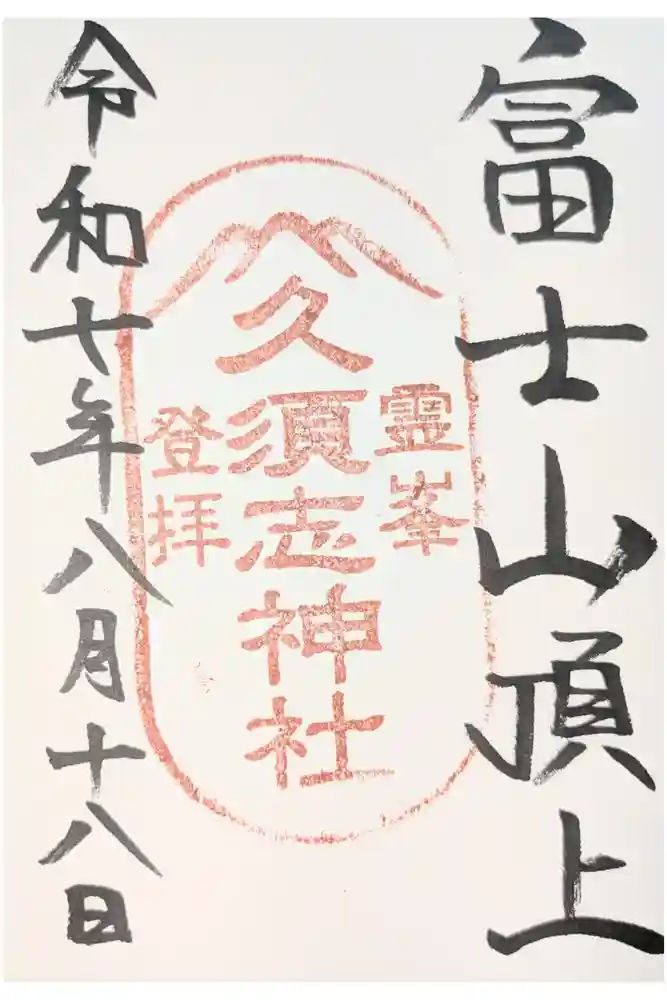 富士山頂上
霊峯
久須志神社
登拝
令和七年八月十八日